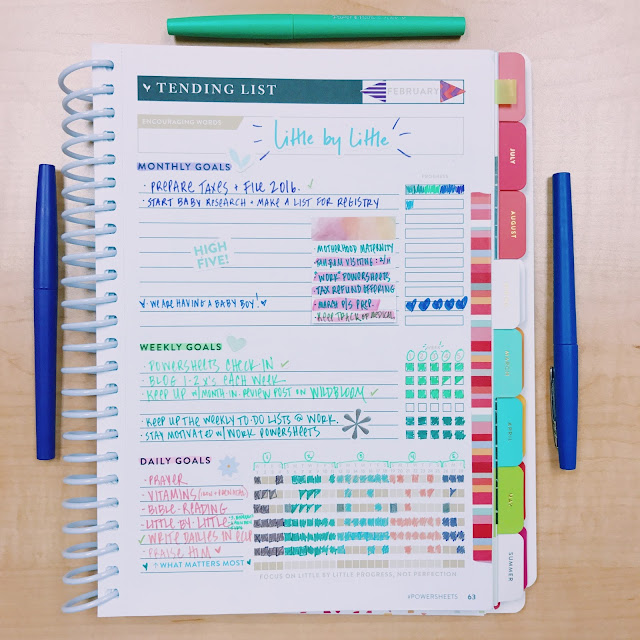 TENDING LIST
FEBRUARY
ENCOURAGING WORDS
little by little
MONTHLY GOALS
PROGRESS
· PREPARE TAXES + FILE 2016. ✓
· START BABY RESEARCH + MAKE A LIST FOR REGISTRY
HIGH
FIVE!
· MOTHERHOOD MATERNITY
VISITING
· "WORK" POWERSHEETS
· TAX REFUND OFFERING
· MARCH P/S PREP.
· KEEP TRACK OF MEDICAL
♥ WE ARE HAVING A BABY BOY! ♥
WEEKLY GOALS
· POWERSHEETS CHECK IN ✓
· BLOG 1-2 X'S EACH WEEK
· KEEP UP W/MONTH IN REVIEW POST ON WILDBLOOM ✓
· KEEP UP THE WEEKLY TO-DO LISTS @ WORK.
· STAY MOTIVATED W/WORK POWERSHEETS
DAILY GOALS
· PRAYER
· VITAMINS
· BIBLE-READING
· LITTLE BY LITTLE
✓ WRITE DAILIES IN
· PRAISE HIM ♥
↑ WHAT MATTERS MOST
FOCUS ON LITTLE BY LITTLE PROGRESS, NOT PERFECTION
#POWERSHEETS 63
JULY
AUGUST
APRIL
MAY
SUMMER